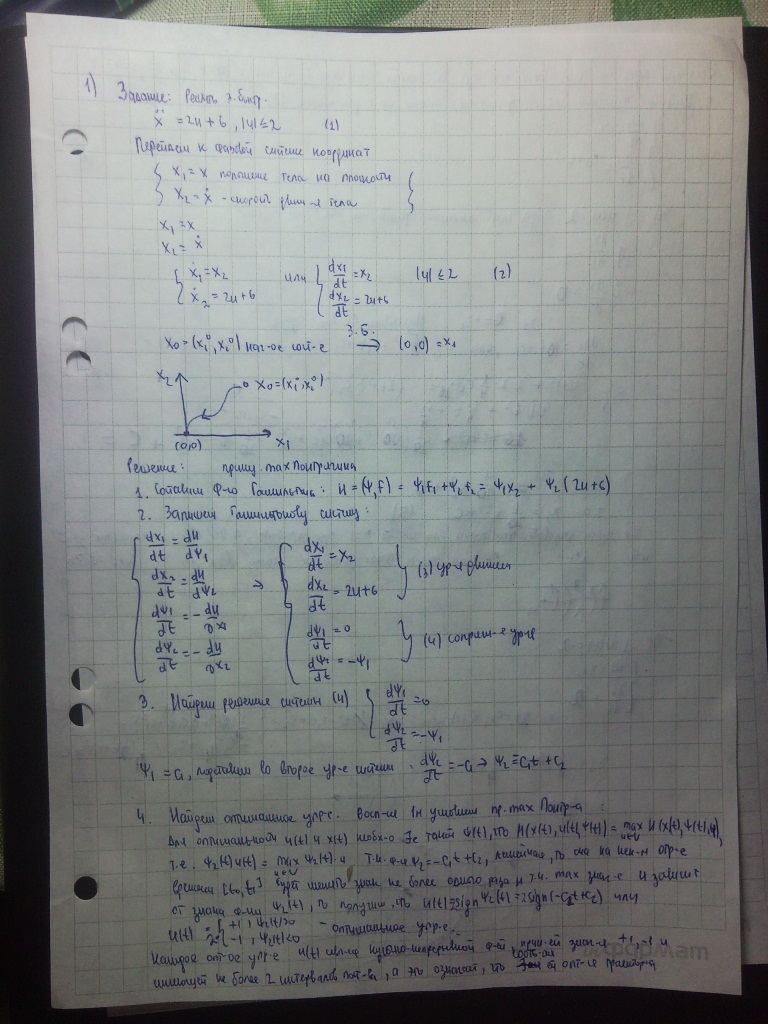 1) Задание: Решить з. быстр.
ẍ = 2u + 6 , |u| ≤ 2 (1)
Перейдем к фазовой системе координат
{ x₁ = x положение тела на плоскости
{ x₂ = ẋ - скорость движ-я тела
x₁ = x
x₂ = ẋ
{ ẋ₁ = x₂ или { dx₁/dt = x₂ |u| ≤ 2 (2)
{ ẋ₂ = 2u + 6 { dx₂/dt = 2u+6
x₀ = (x₁⁰, x₂⁰) нач-ое сост-е З.Б. → (0,0) = x₁
x₂
x₀ = (x₁⁰, x₂⁰)
(0,0) x₁
Решение: принц. max Понтрягина
1. Составим ф-ю Гамильтона: H = (Ψ, F) = Ψ₁F₁ + Ψ₂F₂ = Ψ₁x₂ + Ψ₂(2u+6)
2. Запишем Гамильтонову систему:
{ dx₁/dt = dH/dΨ₁ ⇒ { dx₁/dt = x₂
{ dx₂/dt = dH/dΨ₂ { dx₂/dt = 2u+6 } (3) ур-я движен
{ dΨ₁/dt = -dH/∂x₁ { dΨ₁/dt = 0
{ dΨ₂/dt = -dH/∂x₂ { dΨ₂/dt = -Ψ₁ } (4) сопряж-е ур-я
3. Найдем решения систем (4) { dΨ₁/dt = 0
{ dΨ₂/dt = -Ψ₁
Ψ₁ = C₁, подставим во второе ур-е систем . dΨ₂/dt = -C₁ ⇒ Ψ₂ = C₁t + C₂
4. Найдем оптимальное упр-е. Восп-ся 1м условием пр. max Понтр-а :
Для оптимальности u(t) и x(t) необх-о ∃е такой Ψ(t), что H(x(t), u(t), Ψ(t)) = max H(x(t), Ψ(t), u),
т.е. Ψ₂(t)u(t) = max Ψ₂(t)·u т.к. ф-я Ψ₂ = -C₁t + C₂, линейная, то она на нек-м отр-е
времени [t₀, t₁] будет менять знак не более одного раза и т.к. max знач-е u зависит
от знака ф-ии Ψ₂(t), то получим, что u(t) = 2sign Ψ₂(t) = 2sign(-C₁t + C₂) или
u(t) = 2{ +1, Ψ₂(t)>0
{ -1, Ψ₂(t)<0 - оптимальное упр-е
Каждое опт-ое упр-е u(t) явл-ся кусочно-непрерывной ф-ей, прин-ей знач-я +1, -1 и
имеющет не более 2 интервалов пост-ва, а это означает, что опт-ые траектор-а